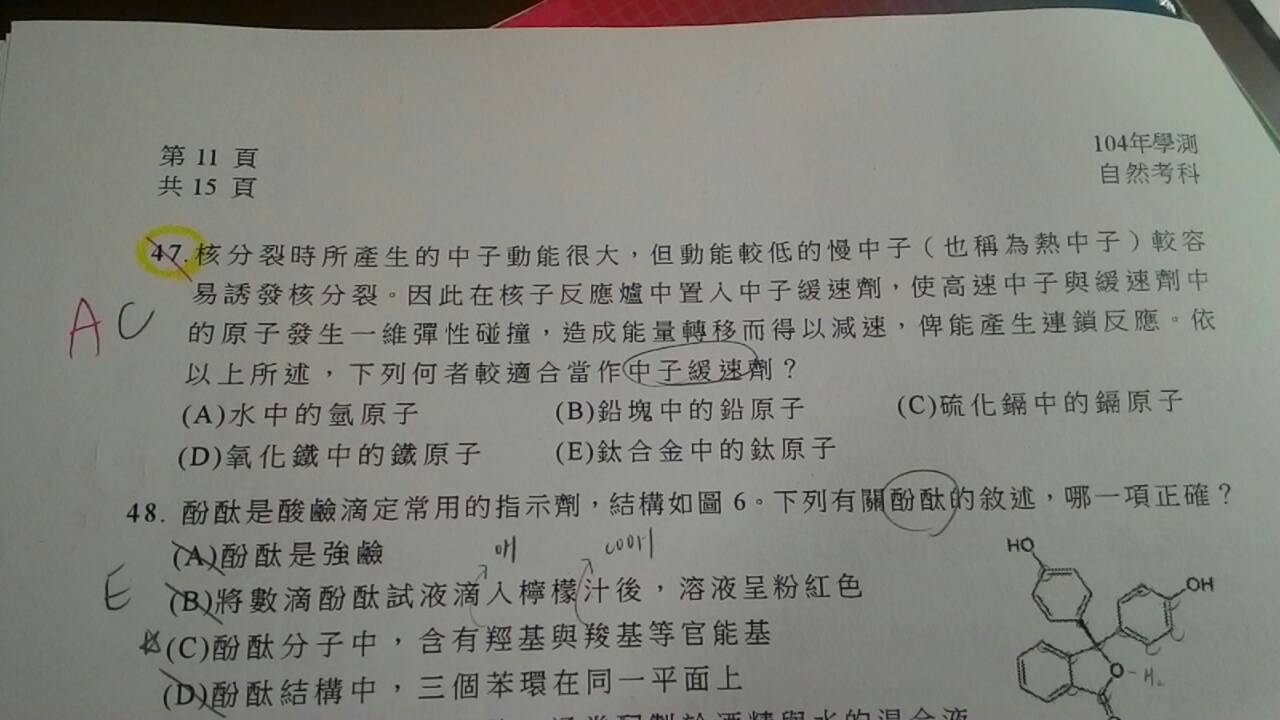 第 11 頁
共 15 頁
104年學測
自然考科
47.核分裂時所產生的中子動能很大，但動能較低的慢中子（也稱為熱中子）較容
易誘發核分裂。因此在核子反應爐中置入中子緩速劑，使高速中子與緩速劑中
AC
的原子發生一維彈性碰撞，造成能量轉移而得以減速，俾能產生連鎖反應。依
以上所述，下列何者較適合當作中子緩速劑？
(A)水中的氫原子 (B)鉛塊中的鉛原子 (C)硫化鎘中的鎘原子
(D)氧化鐵中的鐵原子 (E)鈦合金中的鈦原子
48. 酚酞是酸鹼滴定常用的指示劑，結構如圖 6。下列有關酚酞的敘述，哪一項正確？
(A)酚酞是強鹼
COOH
HO
E
(B)將數滴酚酞試液滴入檸檬汁後，溶液呈粉紅色
OH
(C)酚酞分子中，含有羥基與羧基等官能基
O
(D)酚酞結構中，三個苯環在同一平面上